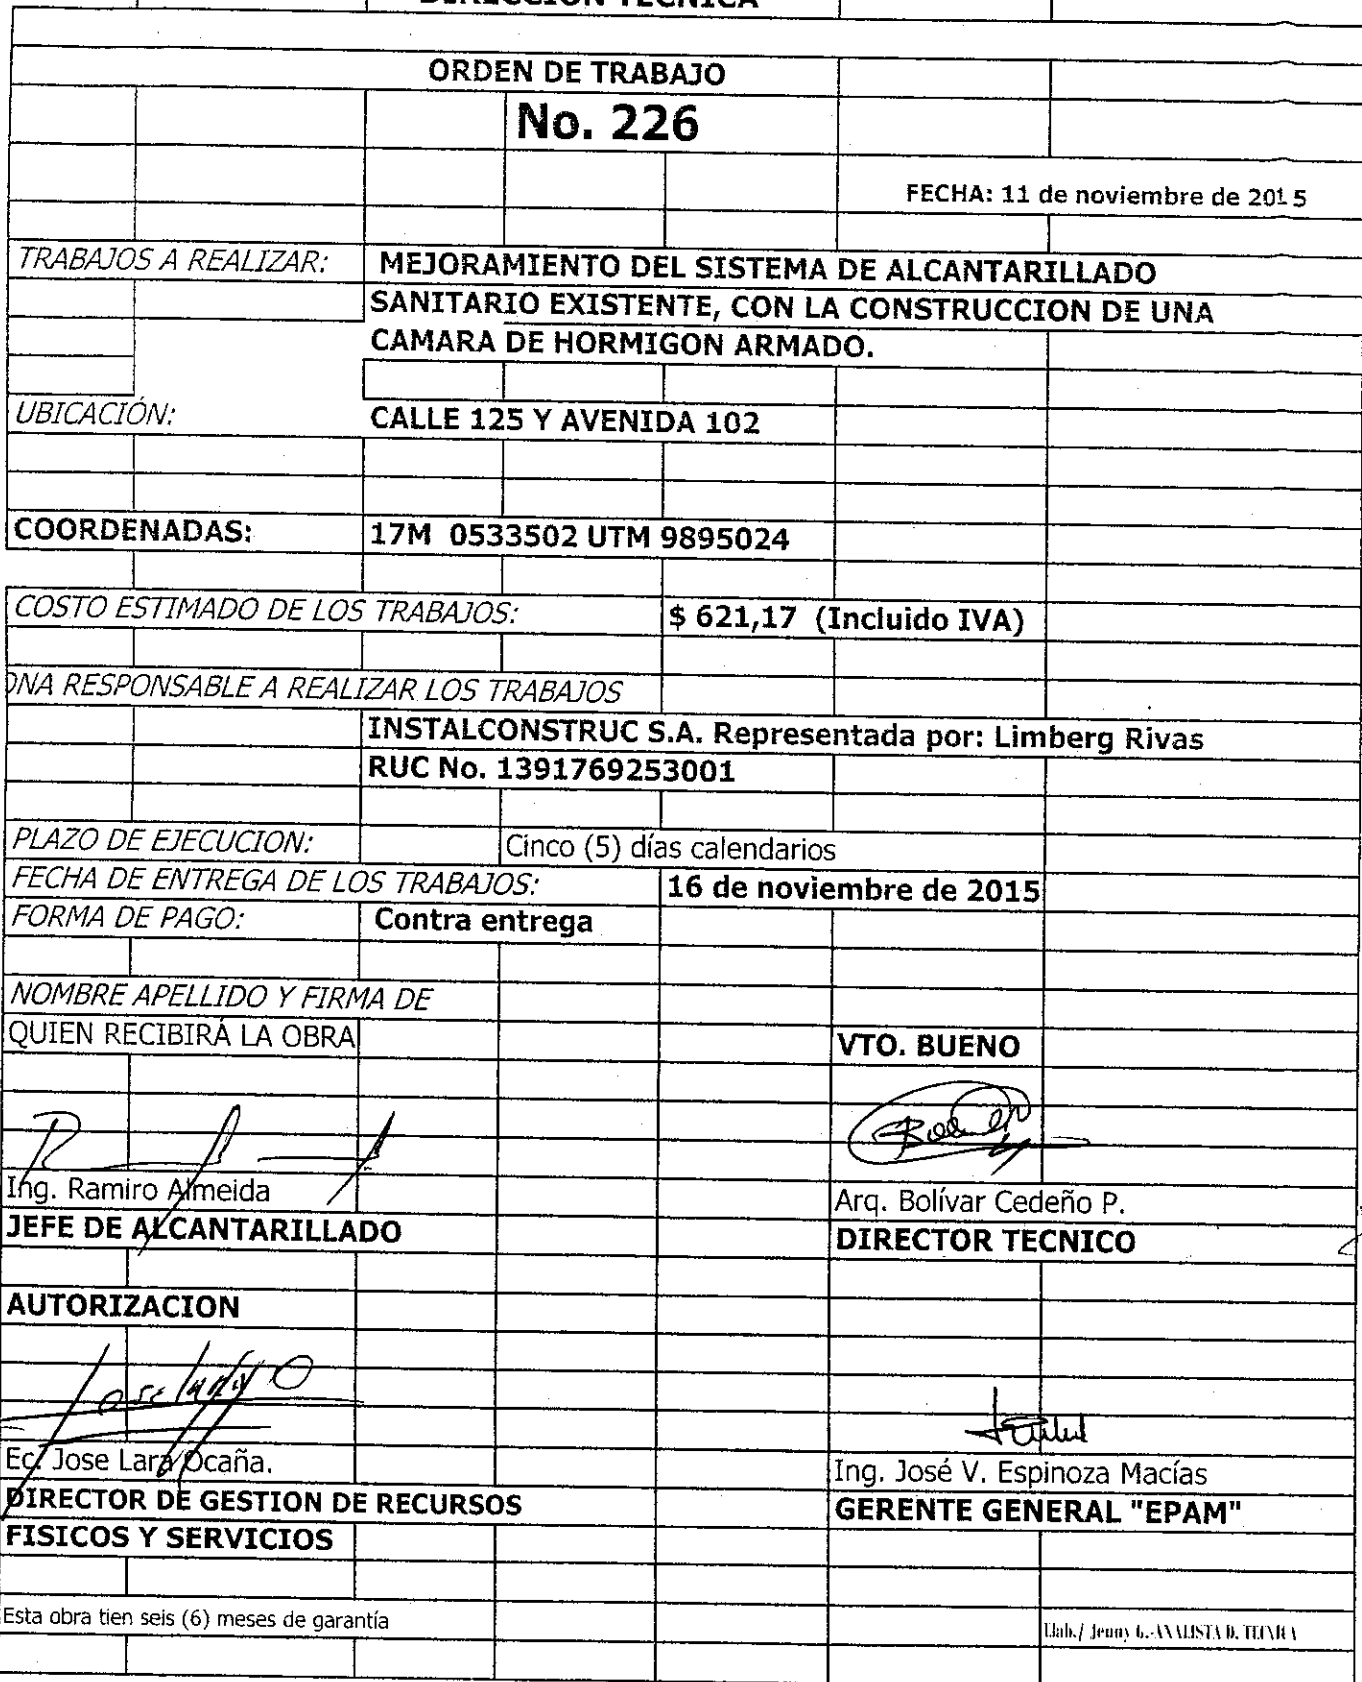 DIRECCION TECNICA
ORDEN DE TRABAJO
No. 226
FECHA: 11 de noviembre de 2015
TRABAJOS A REALIZAR: MEJORAMIENTO DEL SISTEMA DE ALCANTARILLADO
SANITARIO EXISTENTE, CON LA CONSTRUCCION DE UNA
CAMARA DE HORMIGON ARMADO.
UBICACIÓN: CALLE 125 Y AVENIDA 102
COORDENADAS: 17M 0533502 UTM 9895024
COSTO ESTIMADO DE LOS TRABAJOS: $ 621,17 (Incluido IVA)
ONA RESPONSABLE A REALIZAR LOS TRABAJOS
INSTALCONSTRUC S.A. Representada por: Limberg Rivas
RUC No. 1391769253001
PLAZO DE EJECUCION: Cinco (5) días calendarios
FECHA DE ENTREGA DE LOS TRABAJOS: 16 de noviembre de 2015
FORMA DE PAGO: Contra entrega
NOMBRE APELLIDO Y FIRMA DE
QUIEN RECIBIRÁ LA OBRA VTO. BUENO
Ing. Ramiro Almeida Arq. Bolívar Cedeño P.
JEFE DE ALCANTARILLADO DIRECTOR TECNICO
AUTORIZACION
Ec. Jose Lara Ocaña. Ing. José V. Espinoza Macías
DIRECTOR DE GESTION DE RECURSOS GERENTE GENERAL "EPAM"
FISICOS Y SERVICIOS
Esta obra tien seis (6) meses de garantía Elab./ Jenny G.-ANALISTA D.